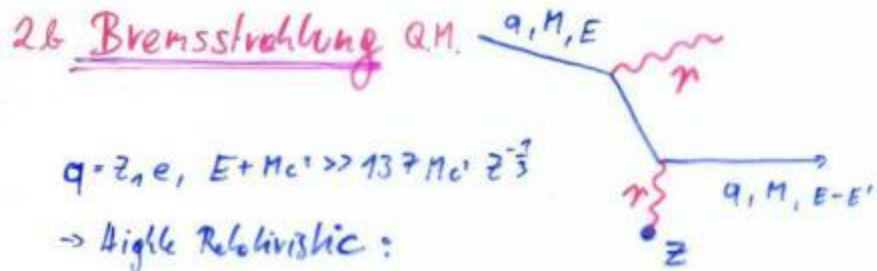 2b Bremsstrahlung Q.M.
q, M, E
γ
q = Z₁ e, E + Mc² >> 137 Mc² Z^-1/3
γ
q, M, E-E'
→ Highly Relativistic:
Z